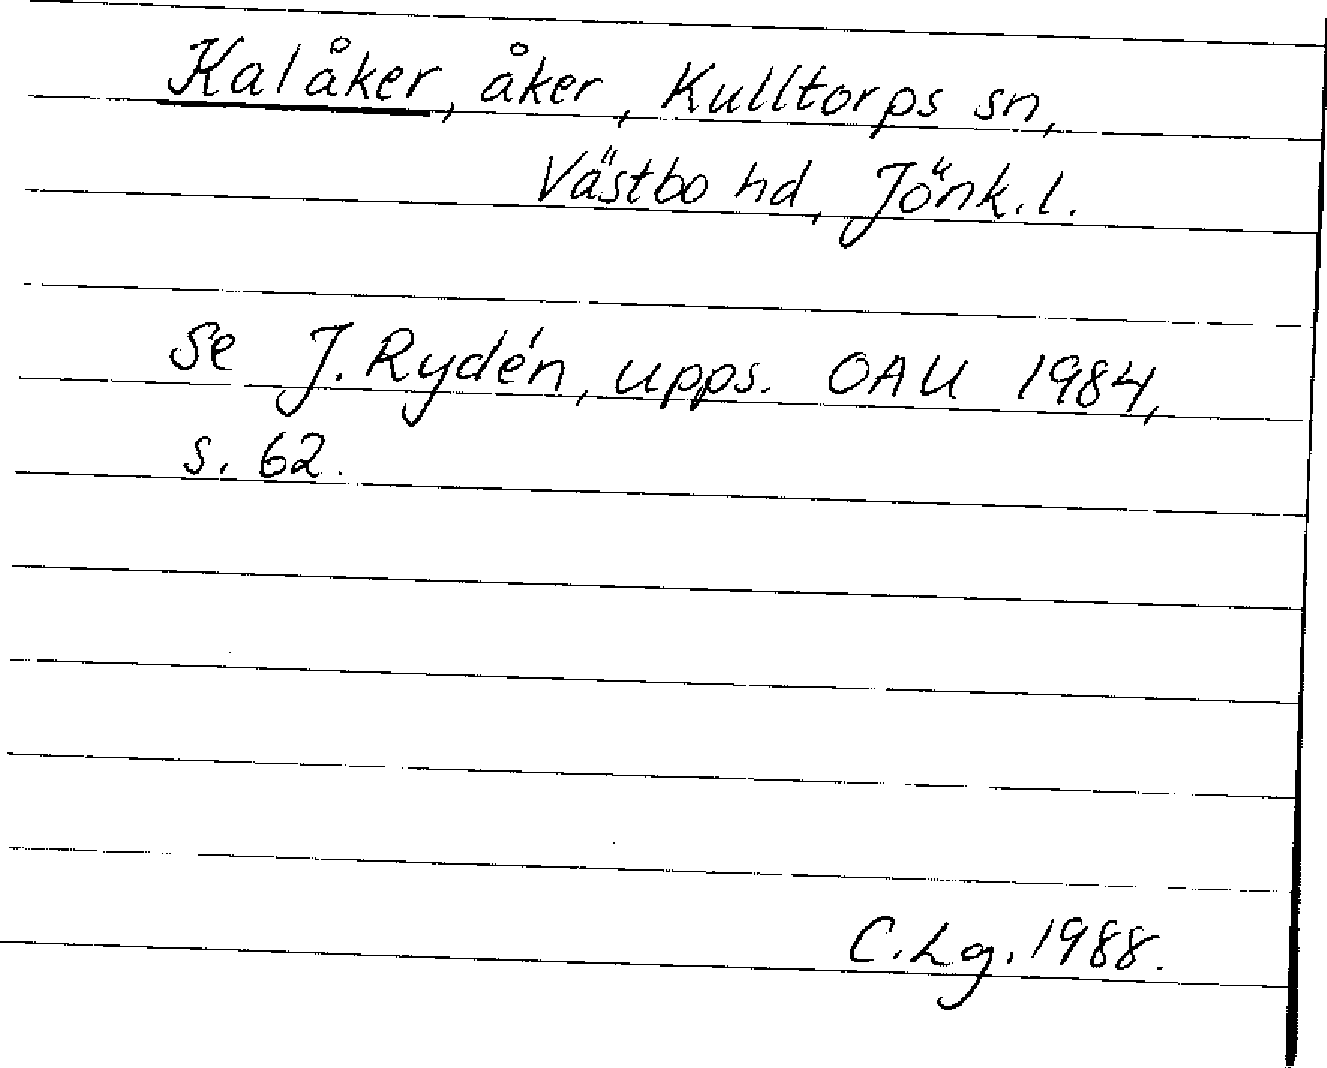 Kalåker, åker, Kulltorps sn,
Västbo hd, Jönk.l.
Se J. Rydén, upps. OAU 1984,
s. 62.
C.Lg. 1988.